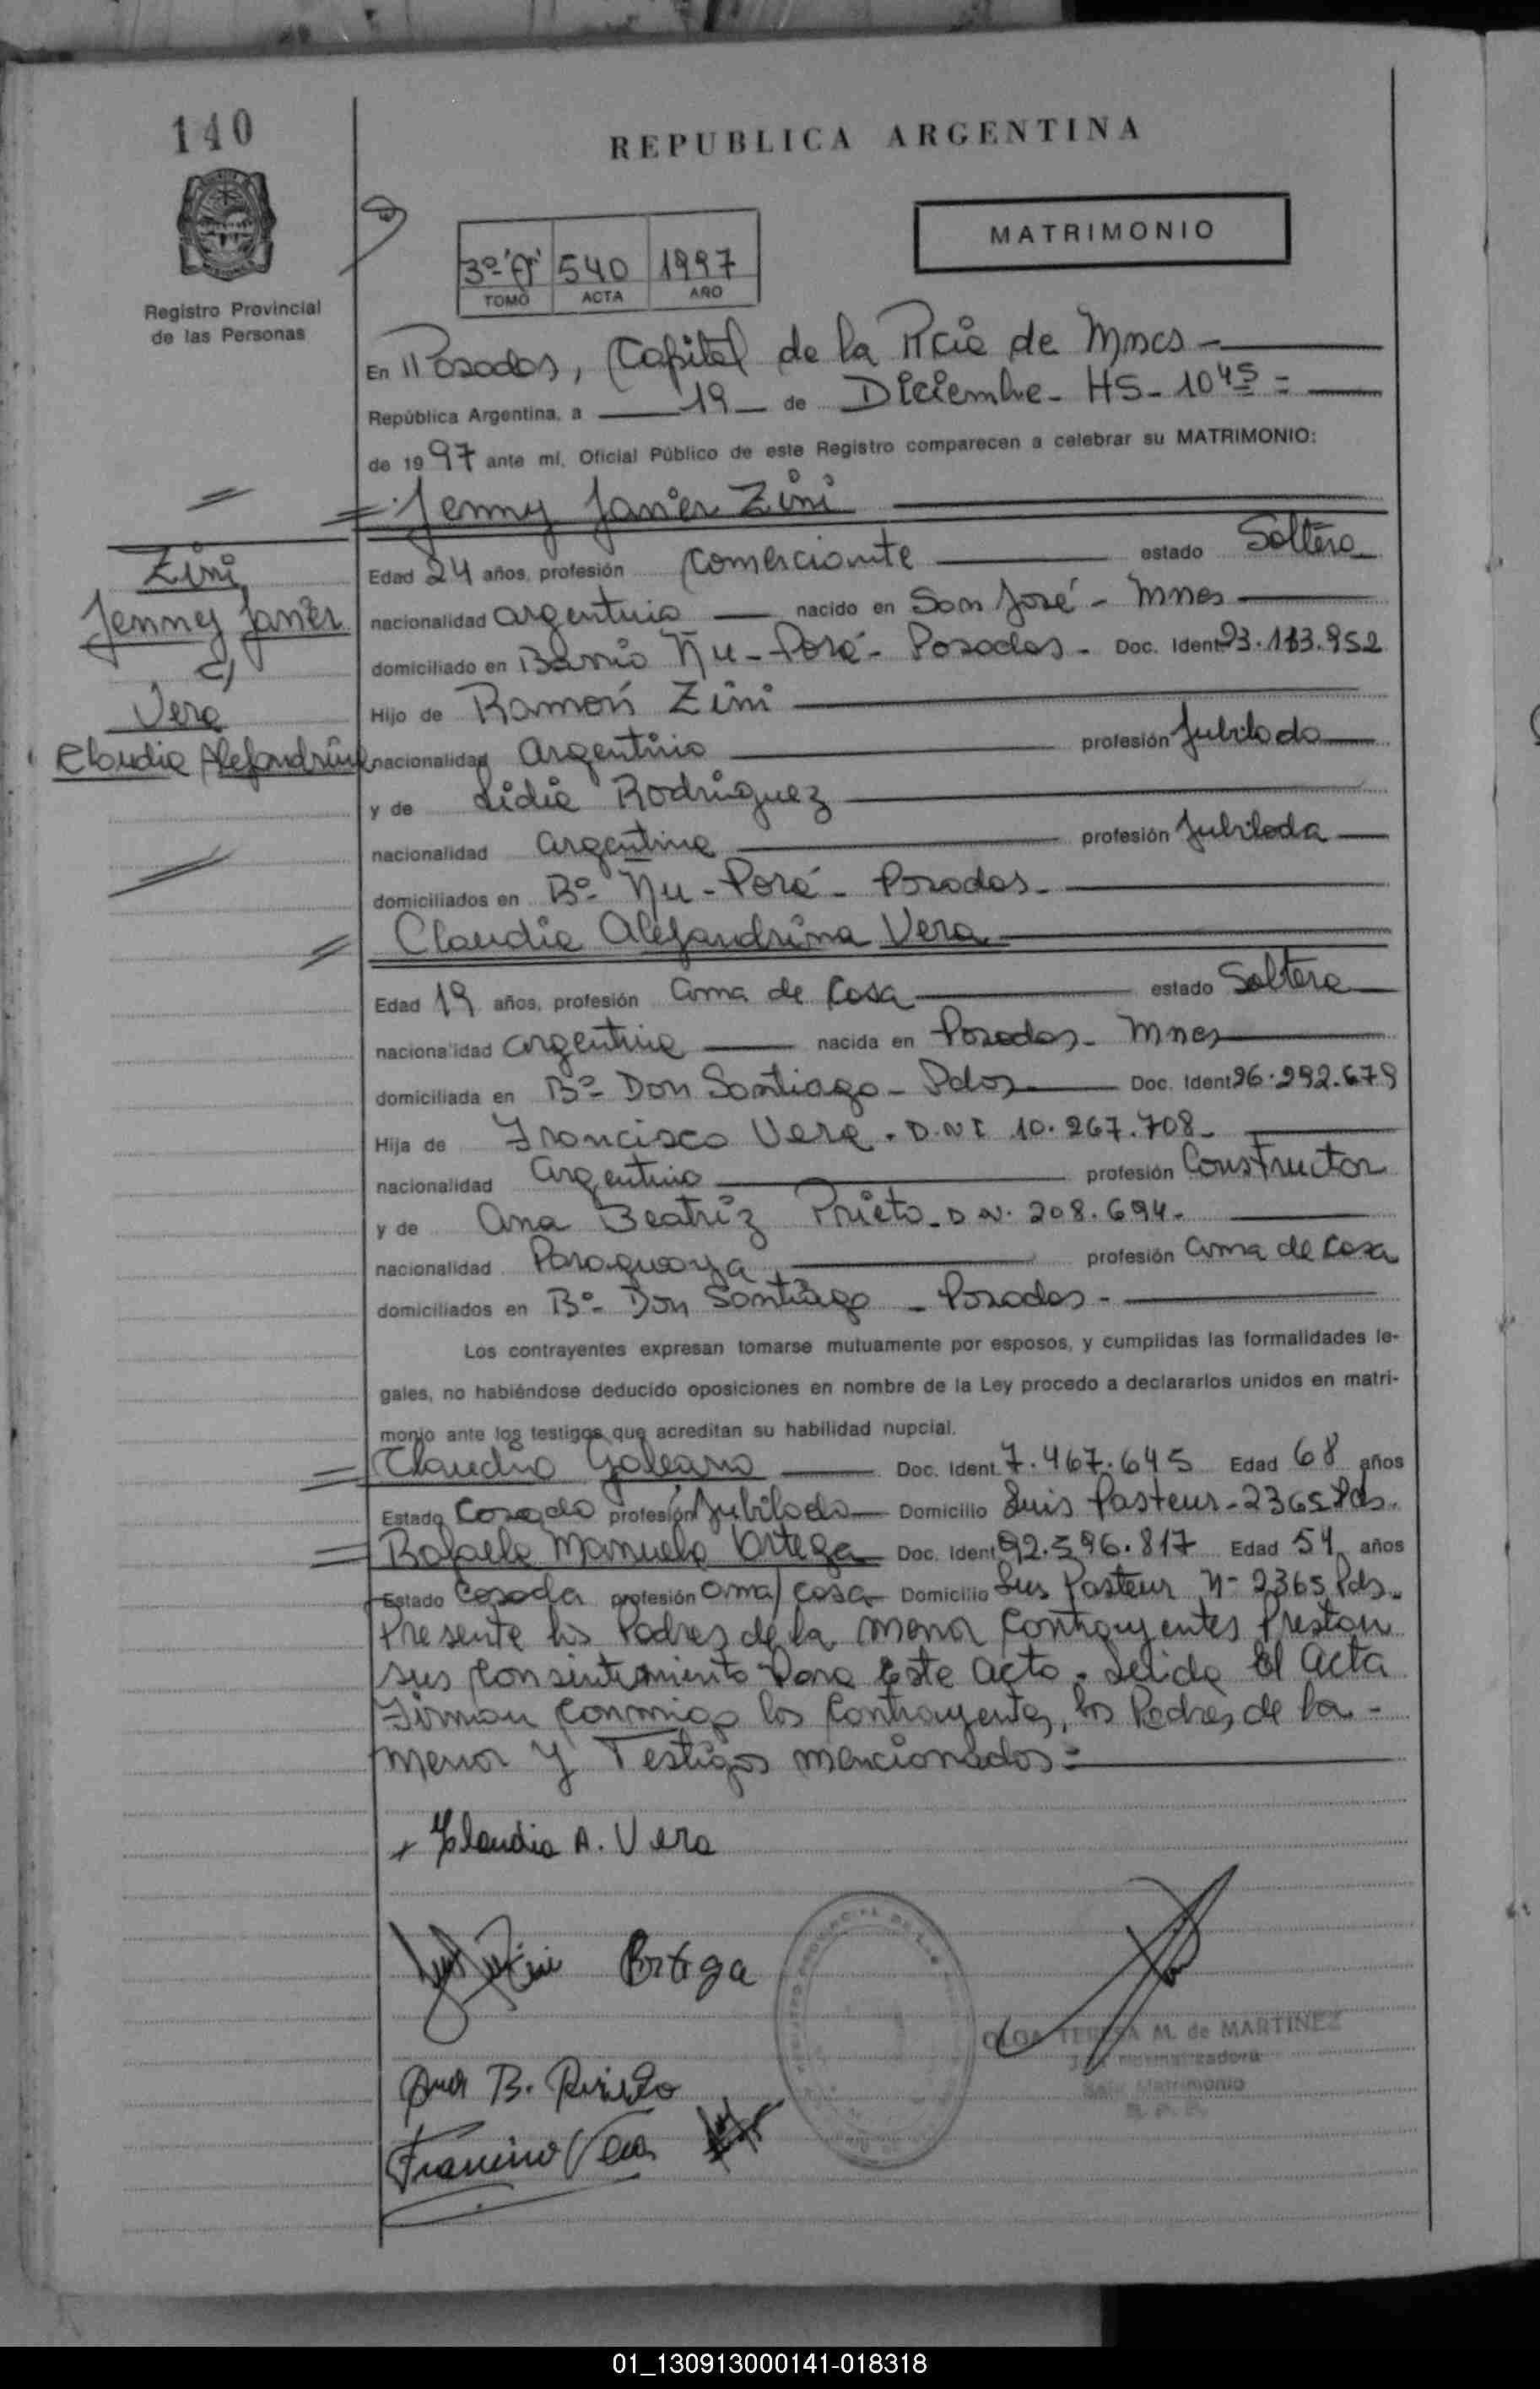 140
REPUBLICA ARGENTINA
MATRIMONIO
3º "A" 540 1997
TOMO ACTA AÑO
Registro Provincial
de las Personas
En Posadas, Capital de la Pcia de Mnes
República Argentina, a 19 de Diciembre - HS - 10 45 =
de 1997 ante mí, Oficial Público de este Registro comparecen a celebrar su MATRIMONIO:
Jenny Javier Zini
Zini
Jenny Javier
c/
Vera
Claudia Alejandrina
Edad 24 años, profesión Comerciante estado Soltero
nacionalidad argentino nacido en San José - Mnes
domiciliado en Barrio Ñu - Porá - Posadas - Doc. Ident 23.113.952
Hijo de Ramón Zini
nacionalidad argentino profesión Jubilado
y de Lidia Rodriguez
nacionalidad argentina profesión Jubilada
domiciliados en Bº Ñu - Porá - Posadas -
Claudia Alejandrina Vera
Edad 19 años, profesión ama de casa estado Soltera
nacionalidad argentina nacida en Posadas - Mnes
domiciliada en Bº Don Santiago - Pdas Doc. Ident 26.292.679
Hija de Francisco Vera . D.N.I 10.267.708 -
nacionalidad argentino profesión Constructor
y de Ana Beatriz Prieto - D N. 208.694 -
nacionalidad Paraguaya profesión ama de casa
domiciliados en Bº Don Santiago - Posadas -
Los contrayentes expresan tomarse mutuamente por esposos, y cumplidas las formalidades le-
gales, no habiéndose deducido oposiciones en nombre de la Ley procedo a declararlos unidos en matri-
monio ante los testigos que acreditan su habilidad nupcial.
Claudio Galeano Doc. Ident. 7.467.645 Edad 68 años
Estado Casado profesión Jubilado Domicilio Luis Pasteur - 2365 Pds.
Rafaela Manuela Ortega Doc. Ident 92.596.817 Edad 54 años
Estado Casada profesión ama/casa Domicilio Luis Pasteur Nº 2365 Pds.
Presente los Padres de la menor Contrayentes Prestan
sus Consintimiento Para Este acto. Leida El acta
Firman conmigo los Contrayentes, los Padres de la -
menor y Testigos mencionados =
x Claudia A. Vera
Ortega
Ana B. Prieto
Francisco Vera
OLGA TERESA M. de MARTINEZ
Matrimonio
01_130913000141-018318